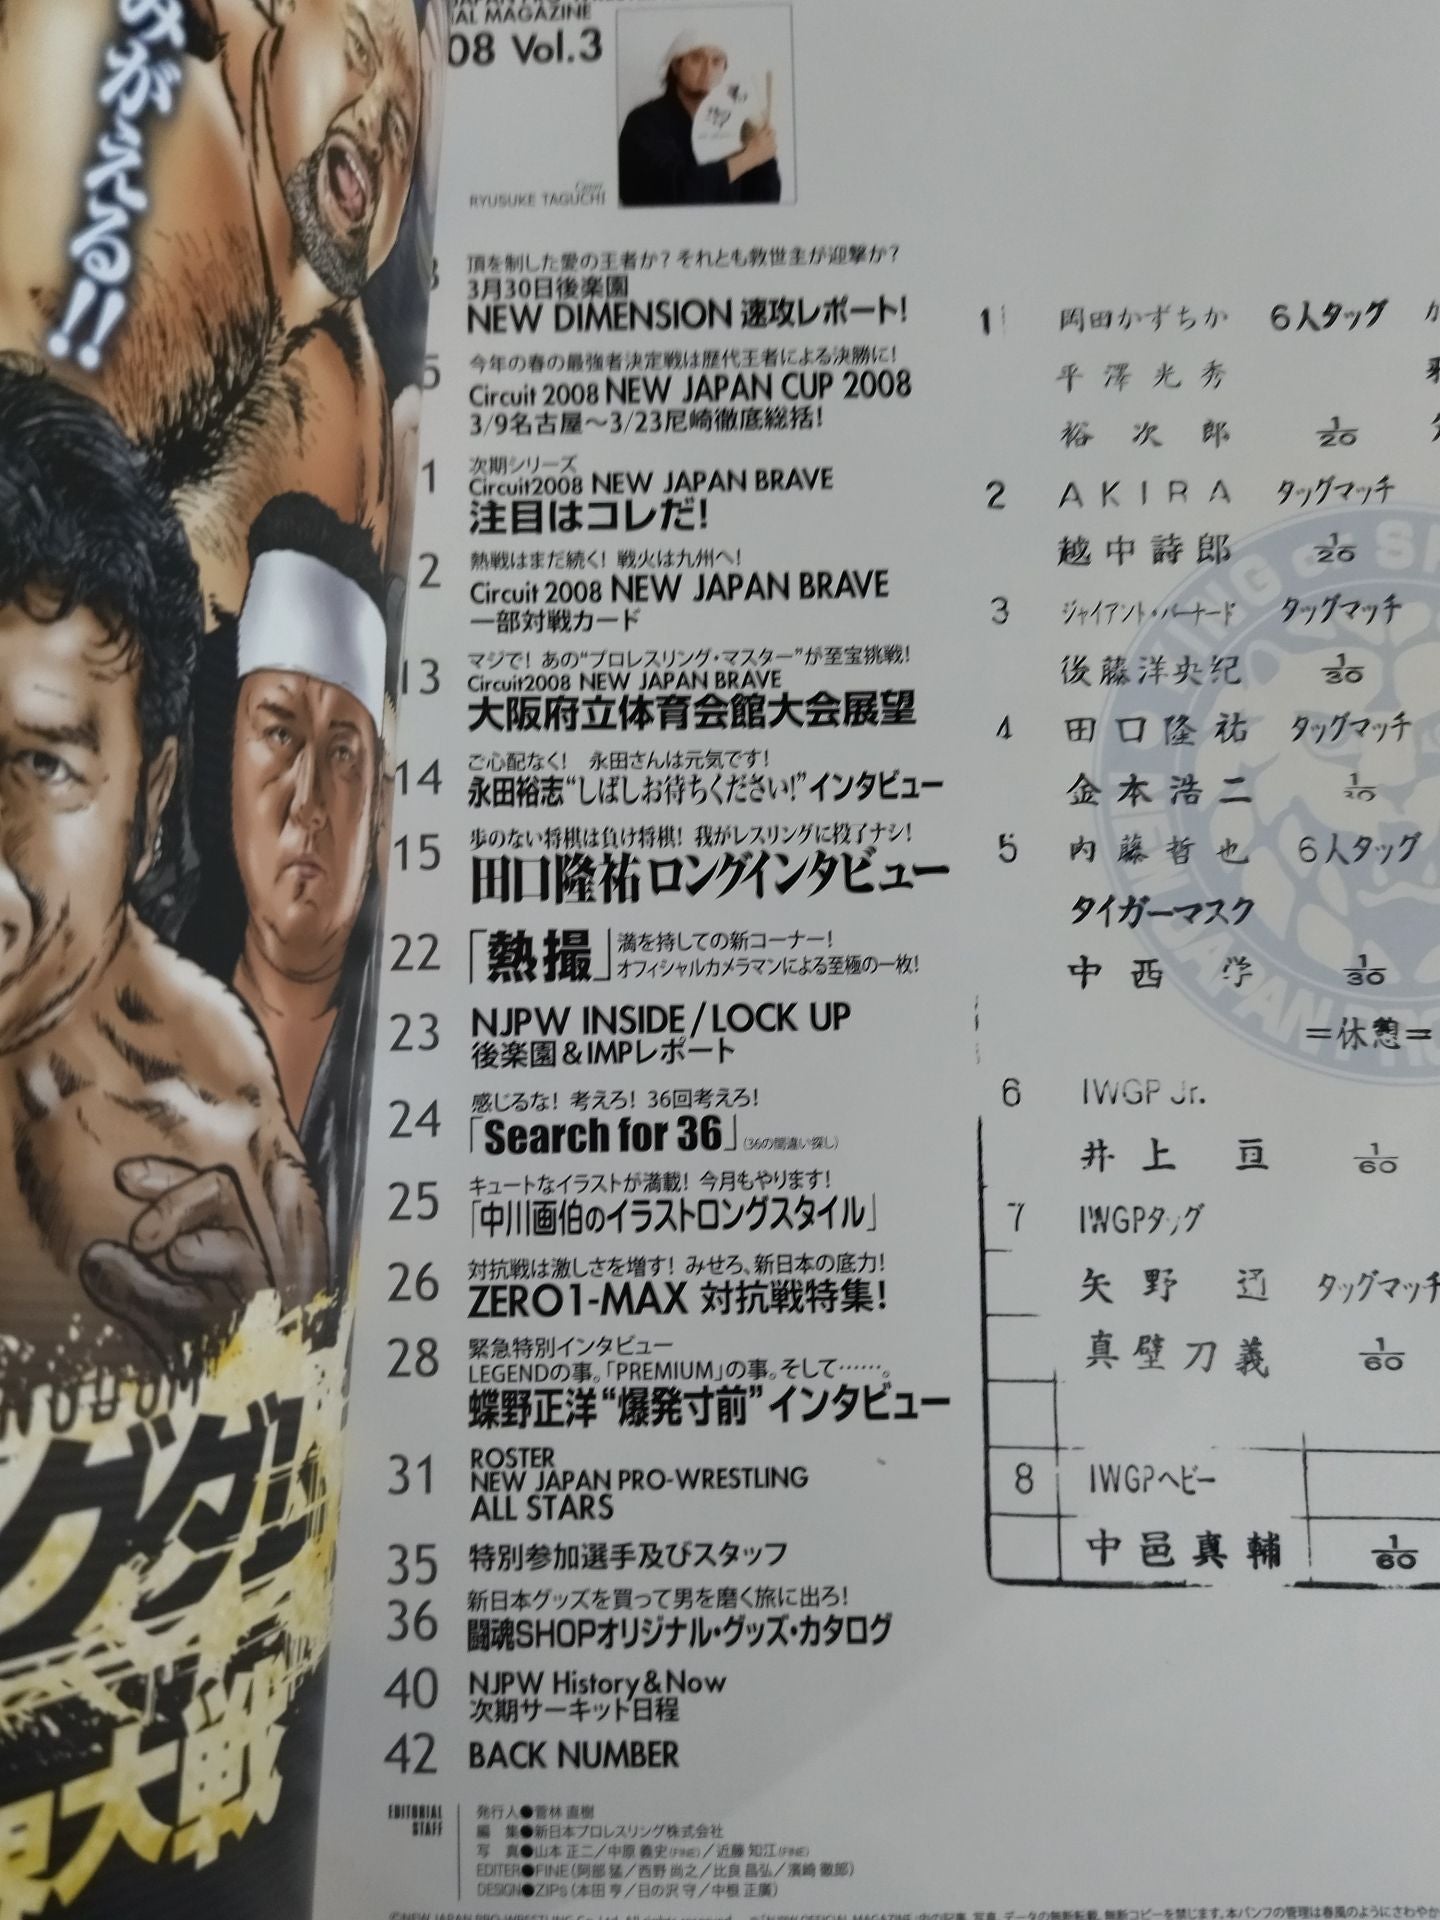 みがえる!!
IAL MAGAZINE
08 Vol.3
Cover
RYUSUKE TAGUCHI
頂を制した愛の王者か? それとも救世主が迎撃か?
3月30日後楽園
NEW DIMENSION 速攻レポート!
今年の春の最強者決定戦は歴代王者による決勝に!
5 Circuit 2008 NEW JAPAN CUP 2008
3/9名古屋〜3/23尼崎徹底総括!
次期シリーズ
1 Circuit2008 NEW JAPAN BRAVE
注目はコレだ!
熱戦はまだ続く! 戦火は九州へ!
2 Circuit 2008 NEW JAPAN BRAVE
一部対戦カード
マジで! あの“プロレスリング・マスター”が至宝挑戦!
13 Circuit2008 NEW JAPAN BRAVE
大阪府立体育会館大会展望
ご心配なく! 永田さんは元気です!
14 永田裕志“しばしお待ちください!”インタビュー
歩のない将棋は負け将棋! 我がレスリングに投了ナシ!
15 田口隆祐ロングインタビュー
22 「熱撮」 満を持しての新コーナー!
オフィシャルカメラマンによる至極の一枚!
23 NJPW INSIDE/LOCK UP
後楽園&IMPレポート
感じるな! 考えろ! 36回考えろ!
24 「Search for 36」(36の間違い探し)
キュートなイラストが満載! 今月もやります!
25 「中川画伯のイラストロングスタイル」
対抗戦は激しさを増す! みせろ、新日本の底力!
26 ZERO1-MAX 対抗戦特集!
28 緊急特別インタビュー
LEGENDの事。「PREMIUM」の事。そして……。
蝶野正洋“爆発寸前”インタビュー
31 ROSTER
NEW JAPAN PRO-WRESTLING
ALL STARS
35 特別参加選手及びスタッフ
新日本グッズを買って男を磨く旅に出ろ!
36 闘魂SHOPオリジナル・グッズ・カタログ
40 NJPW History&Now
次期サーキット日程
42 BACK NUMBER
EDITORIAL STAFF
発行人●菅林 直樹
編 集●新日本プロレスリング株式会社
写 真●山本 正二/中原 義史(FINE)/近藤 知江(FINE)
EDITER●FINE(阿部 猛/西野 尚之/比良 昌弘/濱崎 徹郎)
DESIGN●ZIPs(本田 亨/日の沢 守/中根 正廣)
1 岡田かずちか 6人タッグ
平澤光秀
裕次郎 1/20
2 AKIRA タッグマッチ
越中詩郎 1/20
3 ジャイアント・バーナード タッグマッチ
後藤洋央紀 1/30
4 田口隆祐 タッグマッチ
金本浩二 1/20
5 内藤哲也 6人タッグ
タイガーマスク
中西学 1/30
=休憩=
6 IWGP Jr.
井上亘 1/60
7 IWGPタッグ
矢野通 タッグマッチ
真壁刀義 1/60
8 IWGPヘビー
中邑真輔 1/60
大戦